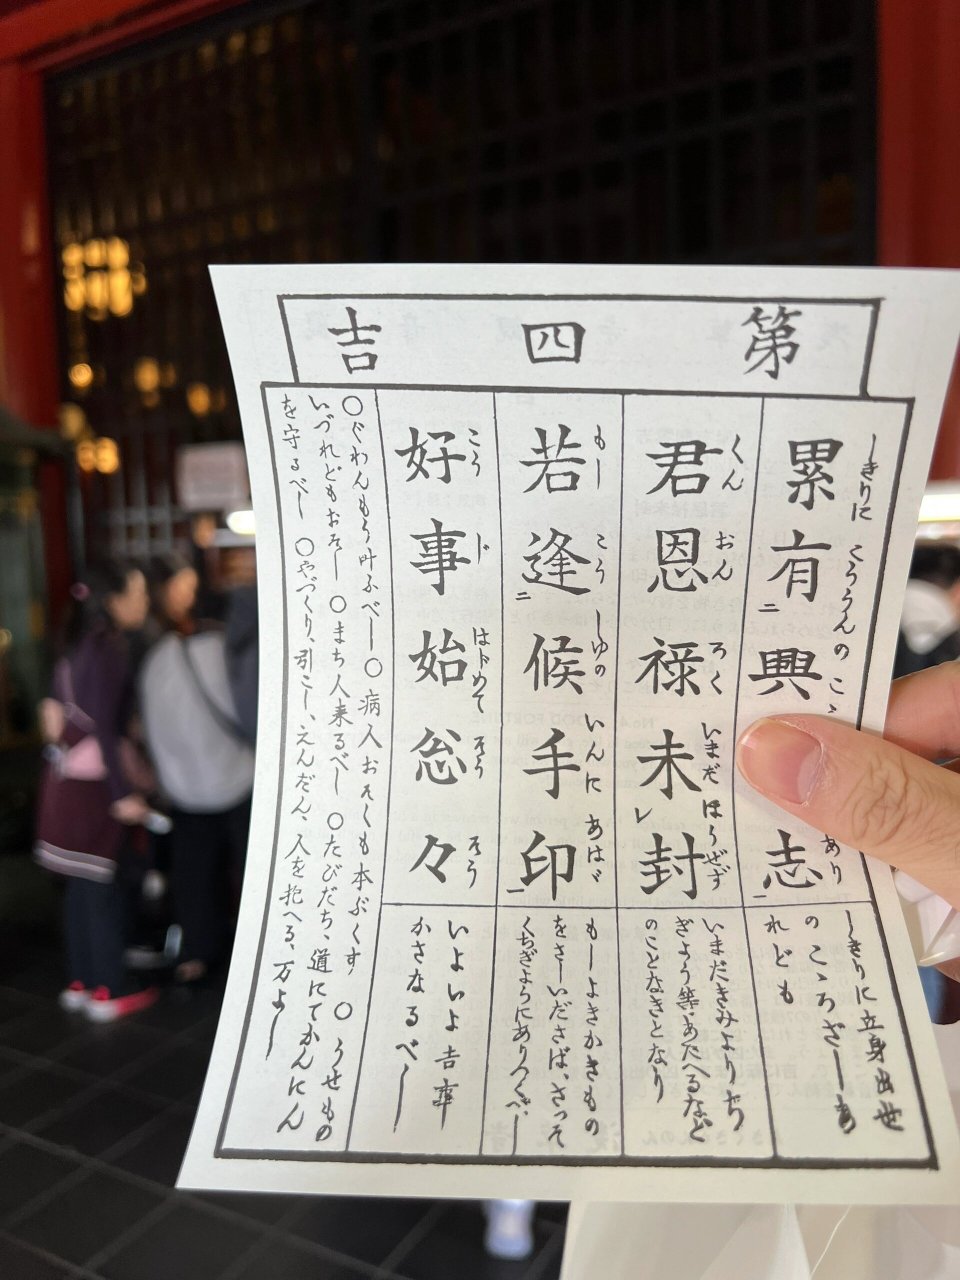 第四吉
しきりに こううんの こゝ あり
累有二興 志一
くん おん ろく いまだ ほうぜず
君恩禄未レ封
もし こう しゆの いんに あはゞ
若逢二候手印一
こう じ はじめて そう そう
好事始忩々
しきりに立身出世
のこゝろざしあ
れども
いまだきみよりち
ぎよう等、あたへるなど
のことなきとなり
もしよきかきもの
をさしいださば、さつそ
くちぎようにありつくべし
いよいよ吉事
かさなるべし
〇ぐわんもう叶ふべし 〇病人おそくも本ぶくす 〇うせもの
いづれどもおそし 〇まち人来るべし 〇たびだち、道にてかんにん
を守るべし 〇やづくり、引こし、えんだん、人を抱へる、万よし